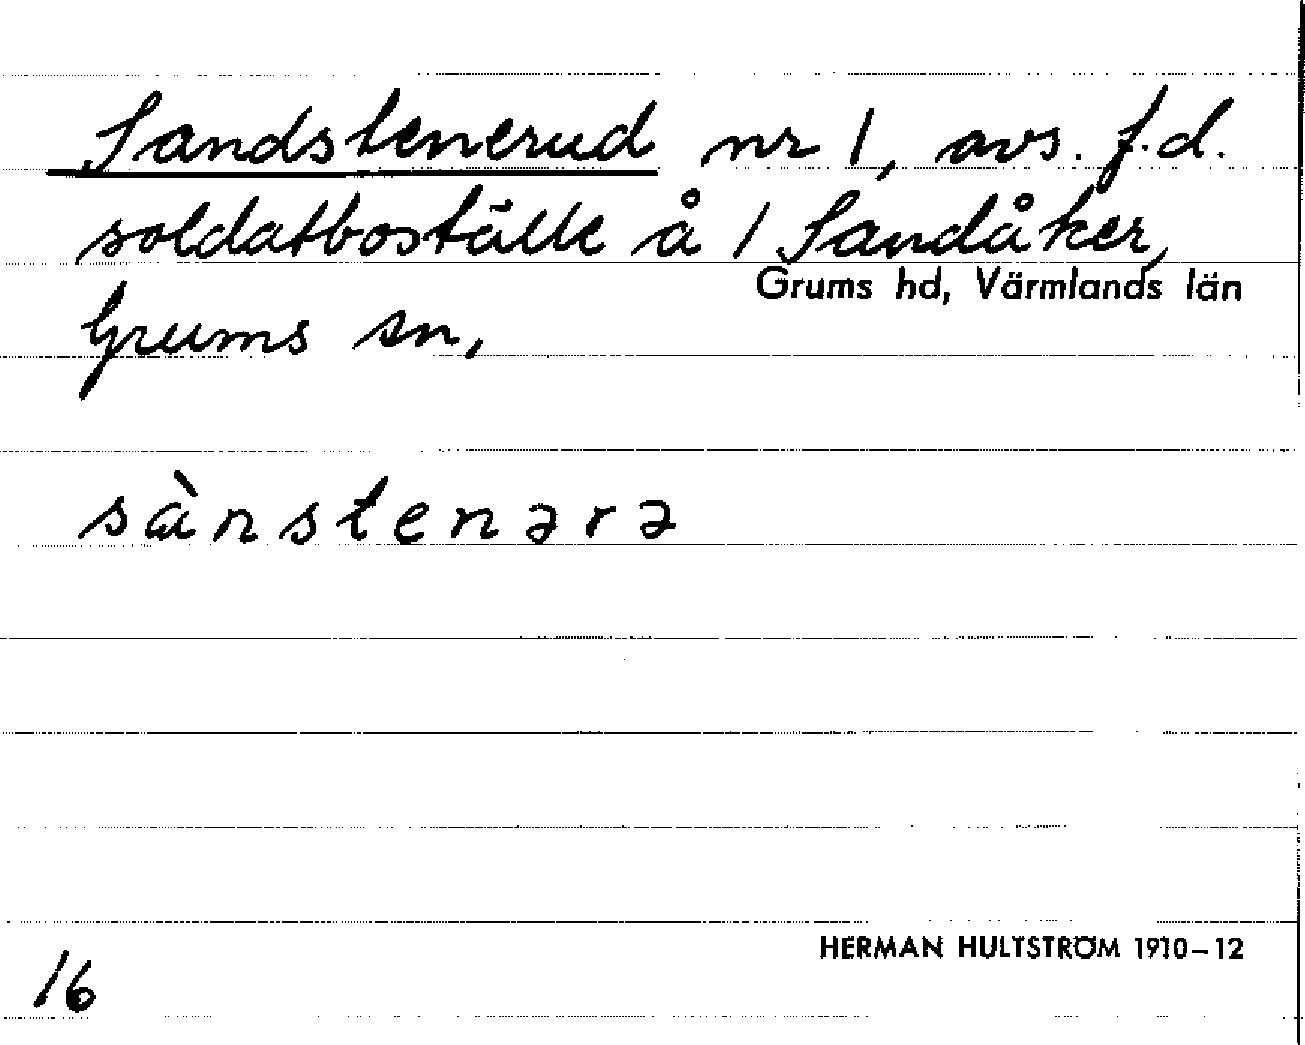 Sandstenerud nr 1, avs. f.d.
soldatboställe å 1 Sandåker,
Grums hd, Värmlands län
Grums sn,
sànstenərə
HERMAN HULTSTRÖM 1910–12
16